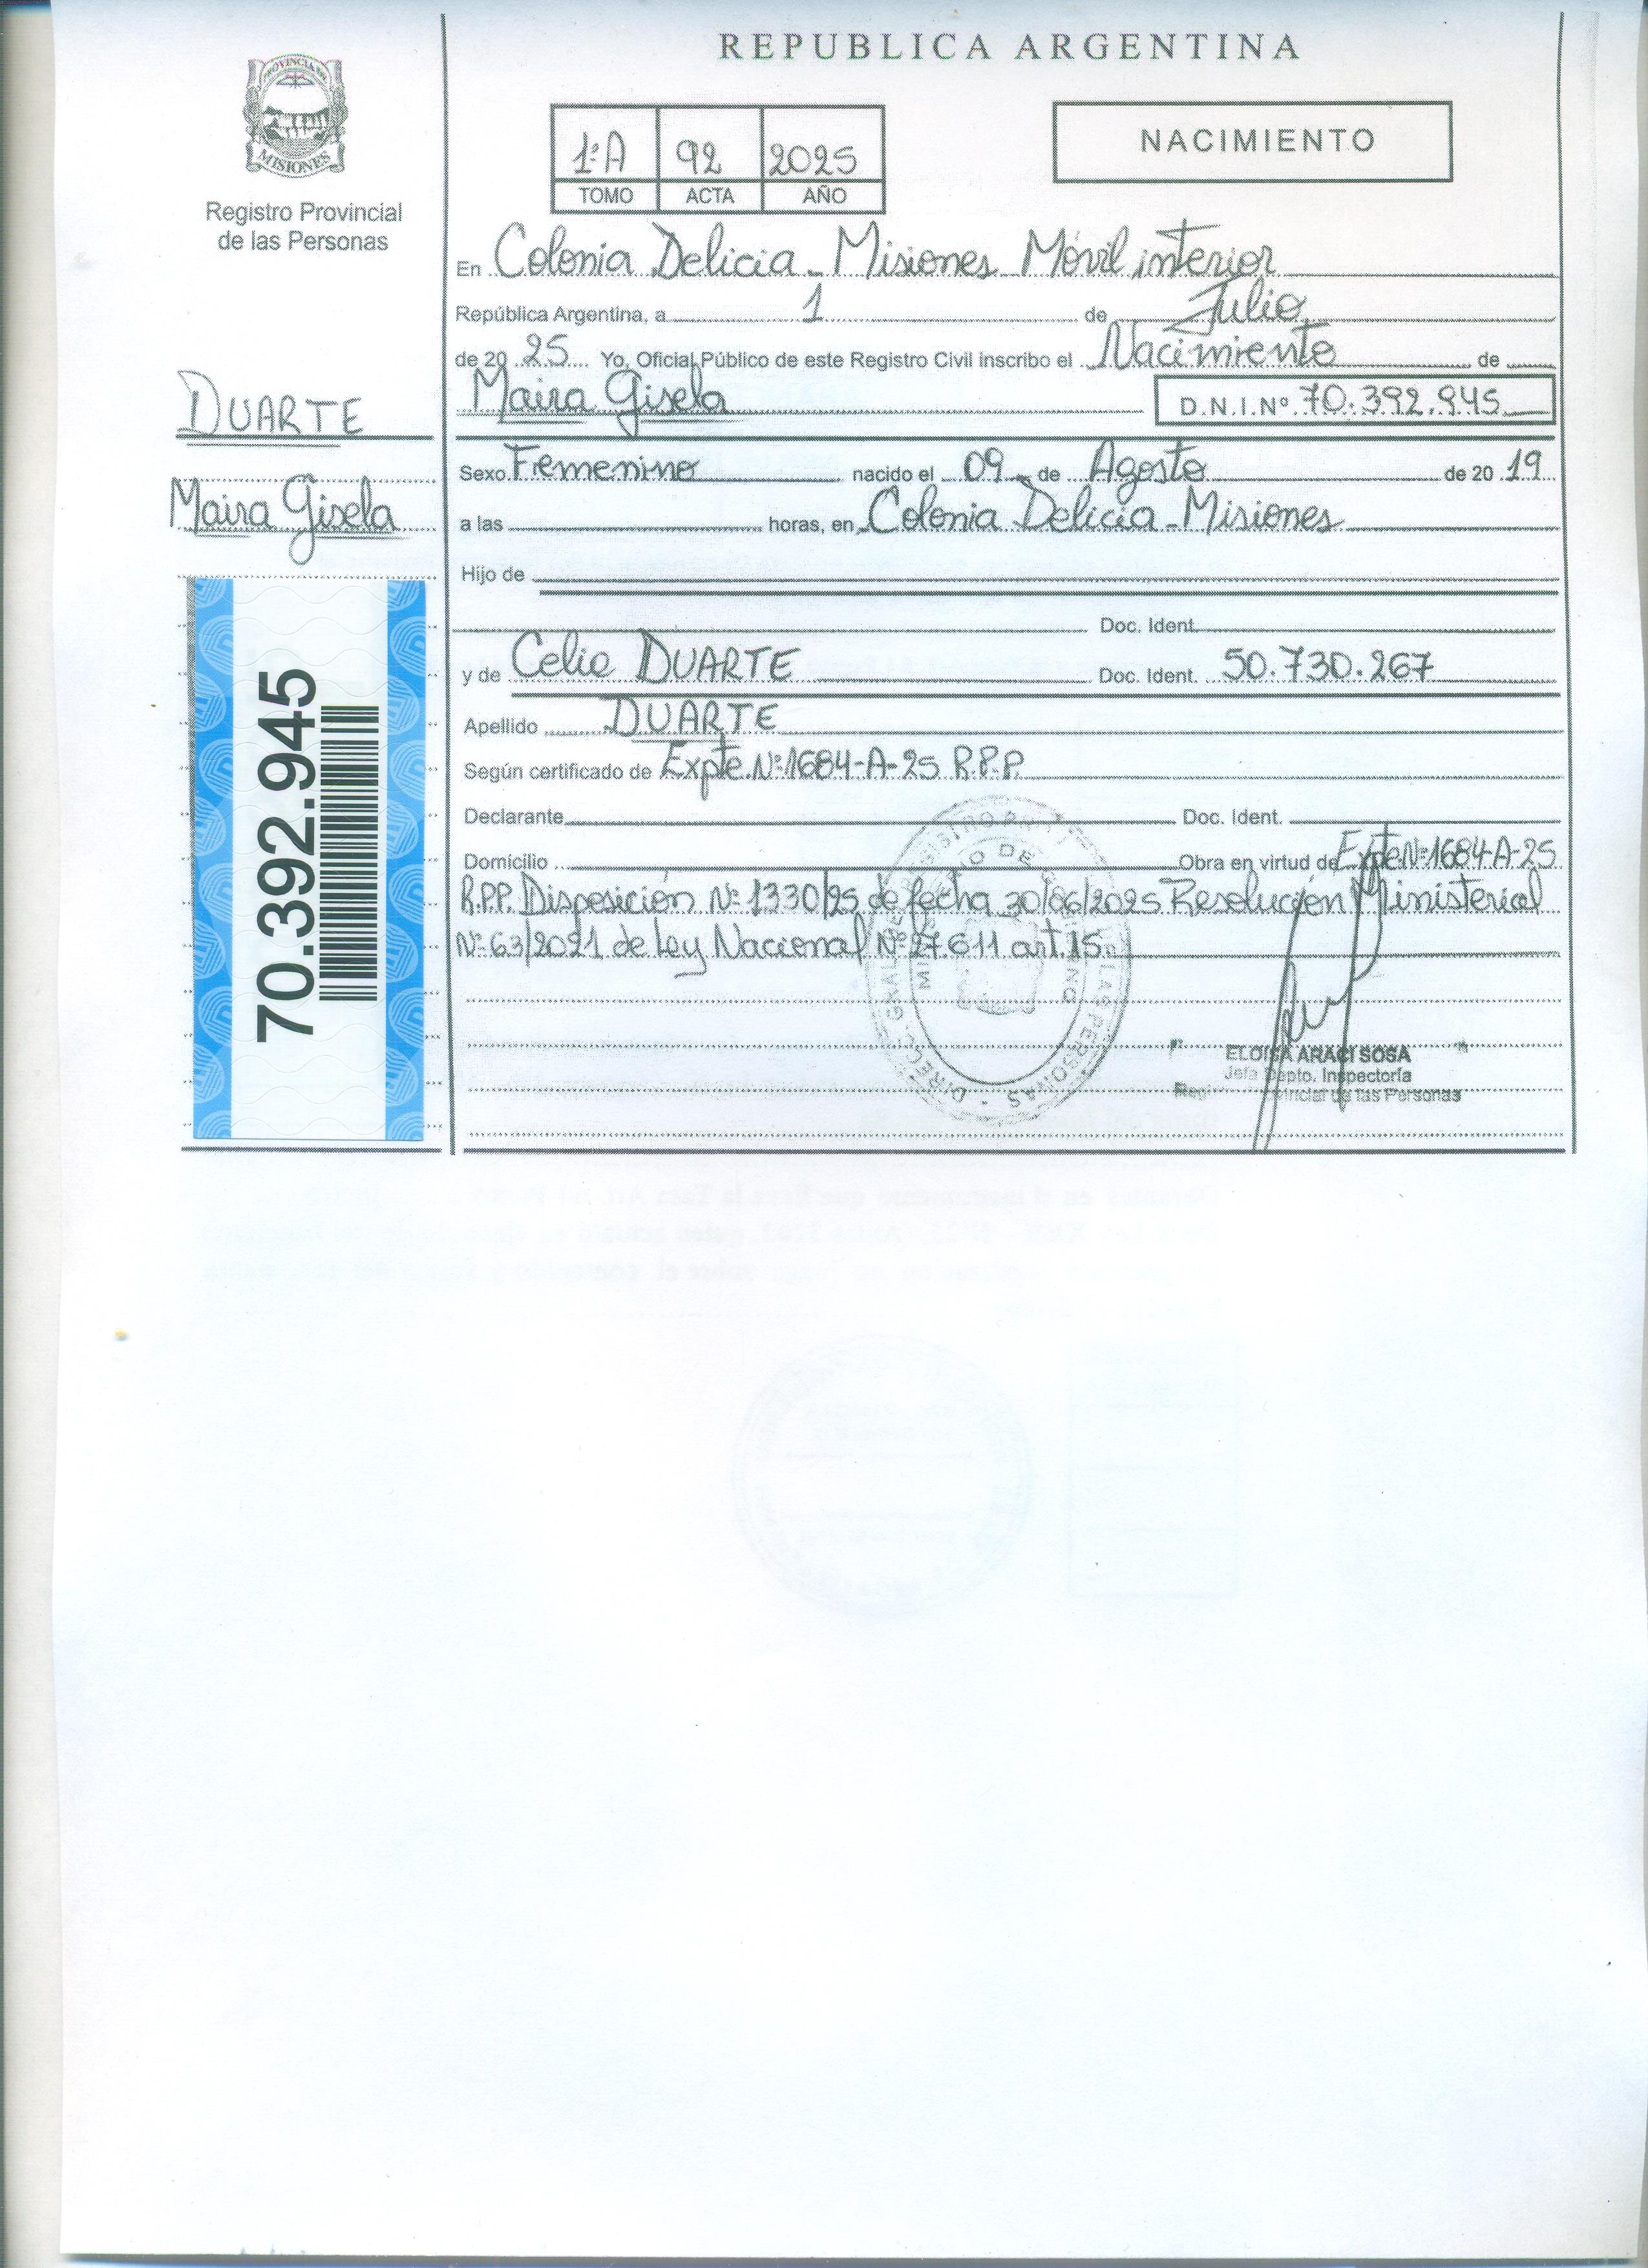 REPUBLICA ARGENTINA
PROVINCIA DE
MISIONES
Registro Provincial
de las Personas
1ºA 92 2025
TOMO ACTA AÑO
NACIMIENTO
En Colonia Delicia - Misiones - Móvil interior
República Argentina, a 1 de Julio
de 20 25 Yo, Oficial Público de este Registro Civil inscribo el Nacimiento de
Maira Gisela D.N.I.Nº 70.392.945
DUARTE
Maira Gisela
70.392.945
Sexo Femenino nacido el 09 de Agosto de 20 19
a las horas, en Colonia Delicia - Misiones
Hijo de
Doc. Ident.
y de Celia DUARTE Doc. Ident. 50.730.267
Apellido DUARTE
Según certificado de Expte.Nº1684-A-25 R.P.P.
Declarante Doc. Ident.
Domicilio Obra en virtud de Expte Nº1684-A-25
R.P.P. Disposición Nº 1330/25 de fecha 30/06/2025 Resolución Ministerial
Nº 63/2021 de Ley Nacional Nº 27.611 art. 15.
ELOISA ARACI SOSA
Jefa Depto. Inspectoría
de las Personas